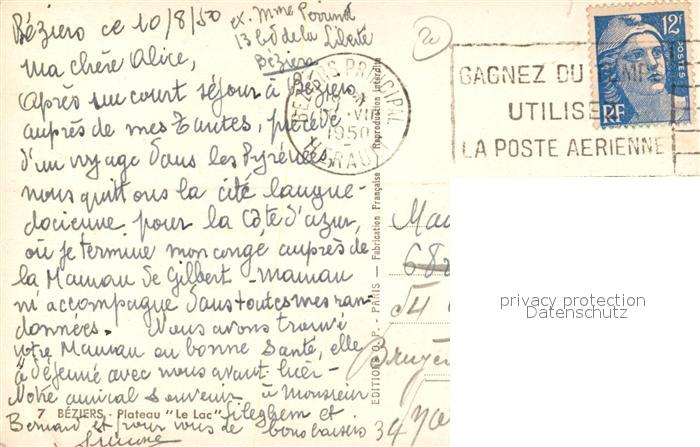 Béziers ce 10/8/50
ex. Mme
13 bd de la Liberté
Béziers
Ma chère Alice,
Après un court séjour à Béziers
auprès de mes Tantes, précédé
d'un voyage dans les Pyrénées,
nous quittons la cité langue-
docienne pour la Côte d'azur,
où je termine mon congé auprès de
la Maman de Gilbert - maman
m'accompagne dans toutes mes ran-
données. Nous avons trouvé
votre Maman en bonne santé, elle
a déjeuné avec nous avant-hier -
Notre amical souvenir à Monsieur
7 BÉZIERS - Plateau "Le Lac"
et
Bernard et pour vous de bons baisers
BEZIERS PRINCIPAL
1950
HERAULT
GAGNEZ DU TEMPS
UTILISEZ
LA POSTE AERIENNE
12F
POSTES
RF
EDITIONS O. P. - PARIS - Fabrication Française - Reproduction interdite
54
34
privacy protection
Datenschutz